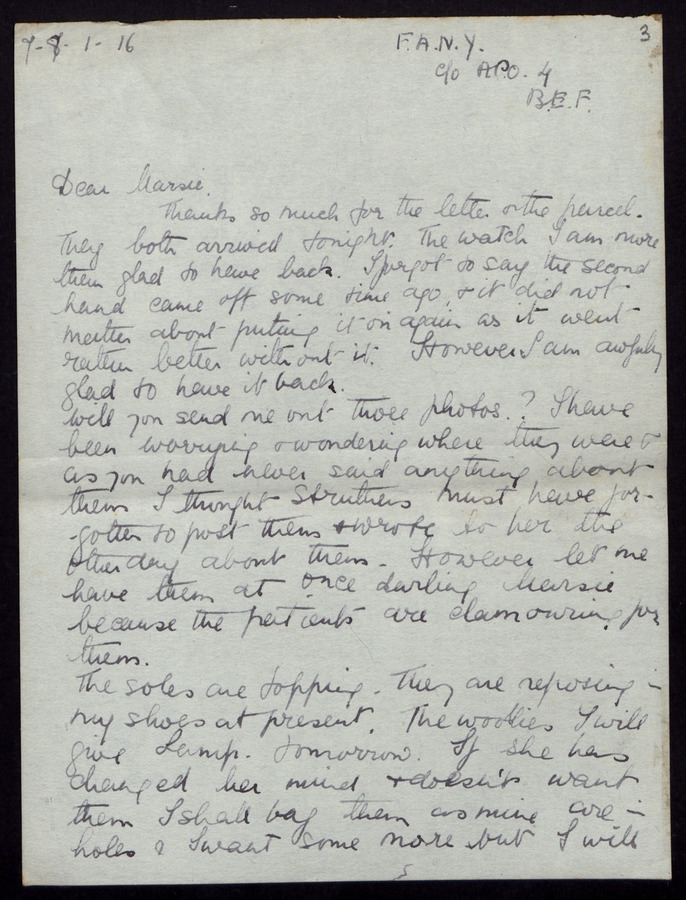 7-8-1-16
F.A.N.Y.
3
c/o A.P.O. 4
B.E.F.
Dear Marsie.
Thanks so much for the letter & the parcel.
They both arrived tonight. The watch I am more
than glad to have back. I forgot to say the second
hand came off some time ago, & it did not
matter about putting it on again as it went
rather better without it. However I am awfully
glad to have it back.
Will you send me out those photos.? I have
been worrying & wondering where they were &
as you had never said anything about
them I thought Struthers must have for-
-gotten to post them & wrote to her the
other day about them - However let me
have them at once darling Marsie
because the patients are clamouring for
them.
The soles are topping. They are reposing in
my shoes at present. The woollies I will
give Lamp. tomorrow. If she has
changed her mind & doesn't want
them I shall bag them as mine are in
holes & I want some more but I will